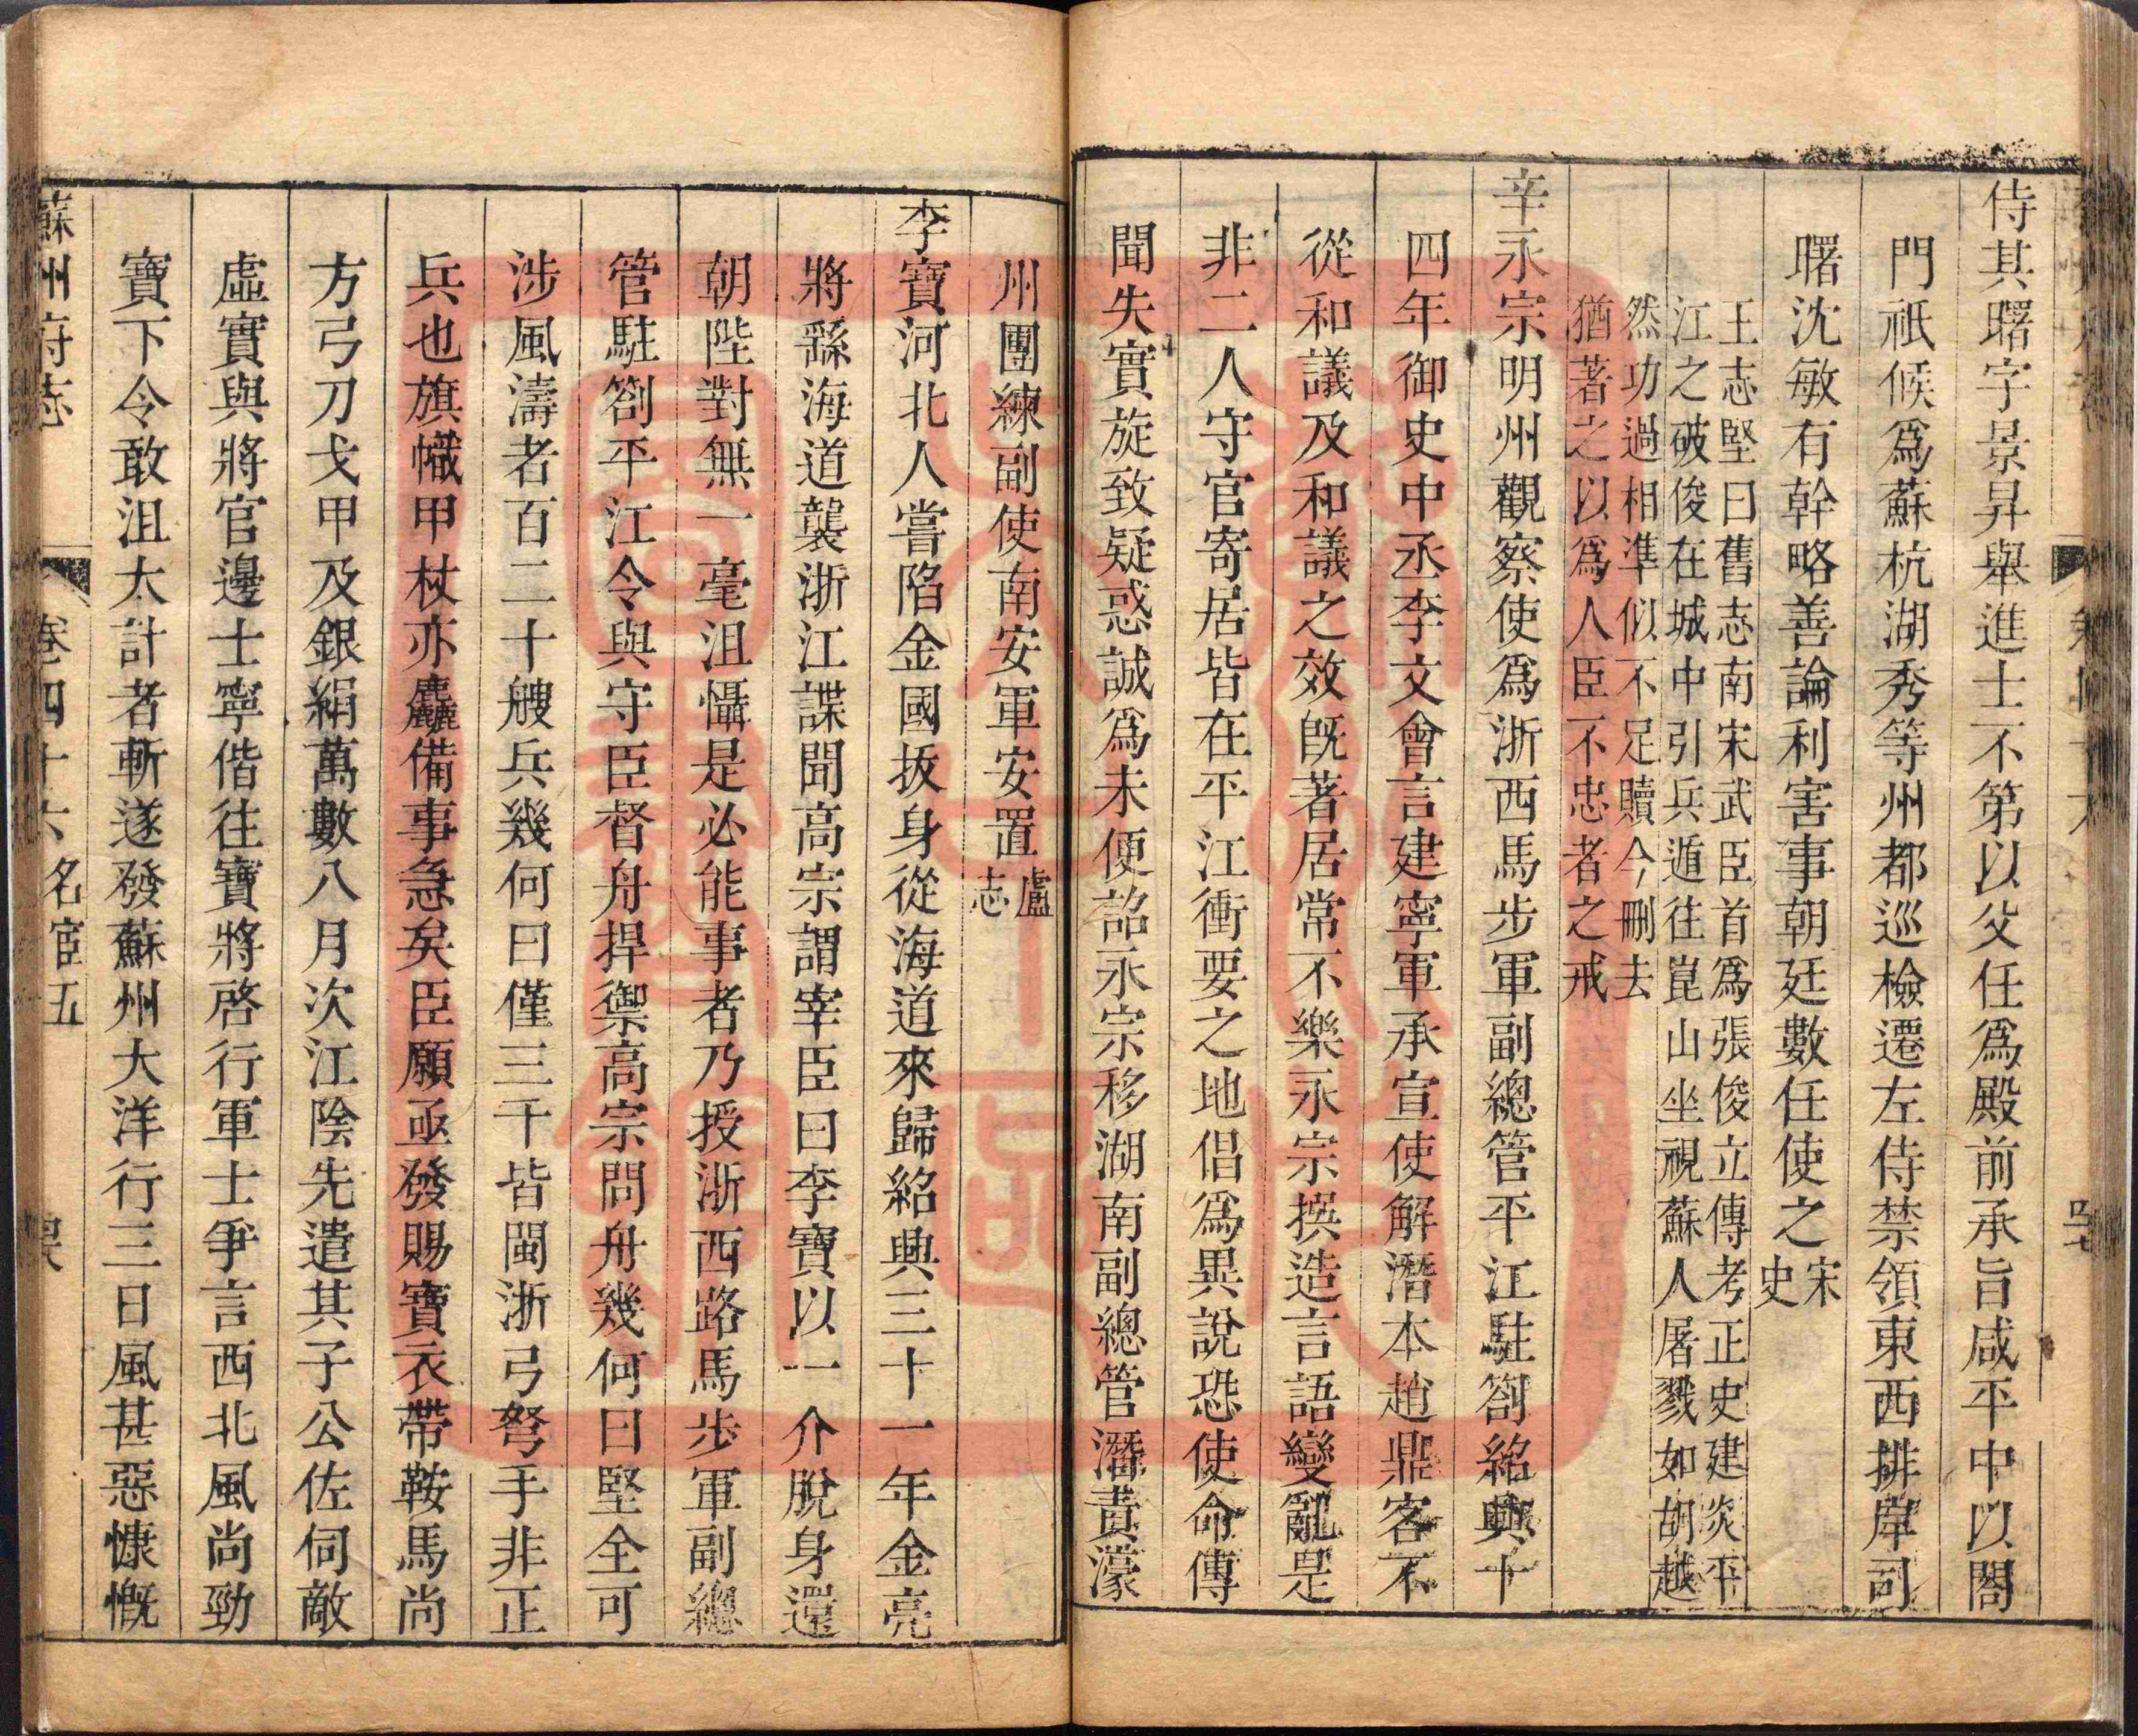 侍其曙字景昇舉進士不第以父任爲殿前承旨咸平中以閤
門祗候爲蘇杭湖秀等州都巡檢遷左侍禁領東西排岸司
曙沈敏有幹略善論利害事朝廷數任使之宋史
王志堅曰舊志南宋武臣首爲張俊立傳考正史建炎平
江之破俊在城中引兵遁往崑山坐視蘇人屠戮如胡越
然功過相準似不足贖今刪去
猶著之以爲人臣不忠者之戒
辛永宗明州觀察使爲浙西馬步軍副總管平江駐劄紹興十
四年御史中丞李文會言建寧軍承宣使解潛本趙鼎客不
從和議及和議之效旣著居常不樂永宗撰造言語變亂是
非二人守官寄居皆在平江衝要之地倡爲異說恐使命傳
聞失實旋致疑惑誠爲未便詔永宗移湖南副總管潛責濠
州團練副使南安軍安置盧志
李寶河北人嘗陷金國拔身從海道來歸紹興三十一年金亮
將繇海道襲浙江諜聞高宗謂宰臣曰李寶以一介脫身還
朝陛對無一毫沮懾是必能事者乃授浙西路馬步軍副總
管駐劄平江令與守臣督舟捍禦高宗問舟幾何曰堅全可
涉風濤者百二十艘兵幾何曰僅三千皆閩浙弓弩手非正
兵也旗幟甲杖亦麤備事急矣臣願亟發賜寶衣帶鞍馬尚
方弓刀戈甲及銀絹萬數八月次江陰先遣其子公佐伺敵
虛實與將官邊士寧偕往寶將啓行軍士爭言西北風尚勁
寶下令敢沮大計者斬遂發蘇州大洋行三日風甚惡慷慨
蘇州府志 卷四十六 名宦五